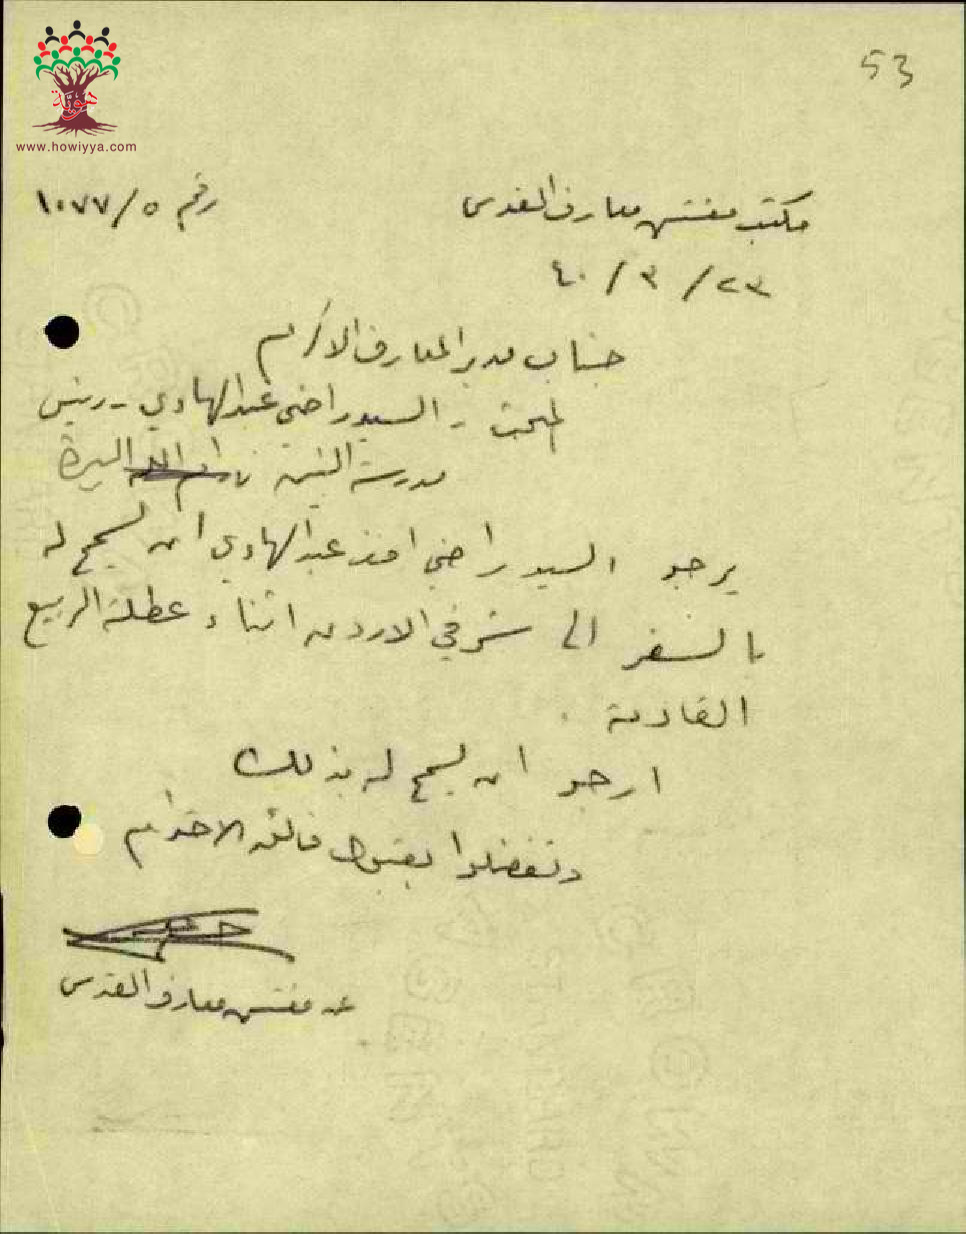 53
هوية
www.howiyya.com
مكتب مفتش معارف القدس
رقم ٥/١٠٧٧
٢٣ / ٣ / ٤٠
جناب مدير المعارف الاكرم
المبحث - السيد راضي عبد الهادي - رئيس
مدرسة البنين البيرة
يرجو السيد راضي افندي عبد الهادي ان يسمح له
بالسفر الى شرقي الاردن اثناء عطلة الربيع
القادمة .
ارجو ان يسمح له بذلك
وتفضلوا بقبول فائق الاحترام
عن مفتش معارف القدس